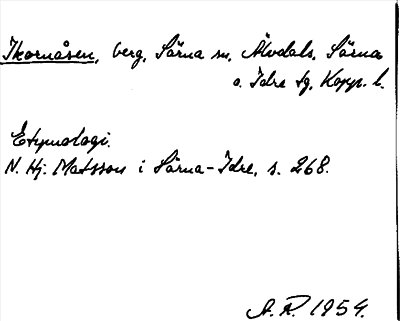 Ikornåsen, berg, Särna sn, Älvdals, Särna
o. Idre tg, Kopp. l.
Etymologi.
N. Hj. Matsson i Särna-Idre, s. 268.
A. R. 1954.